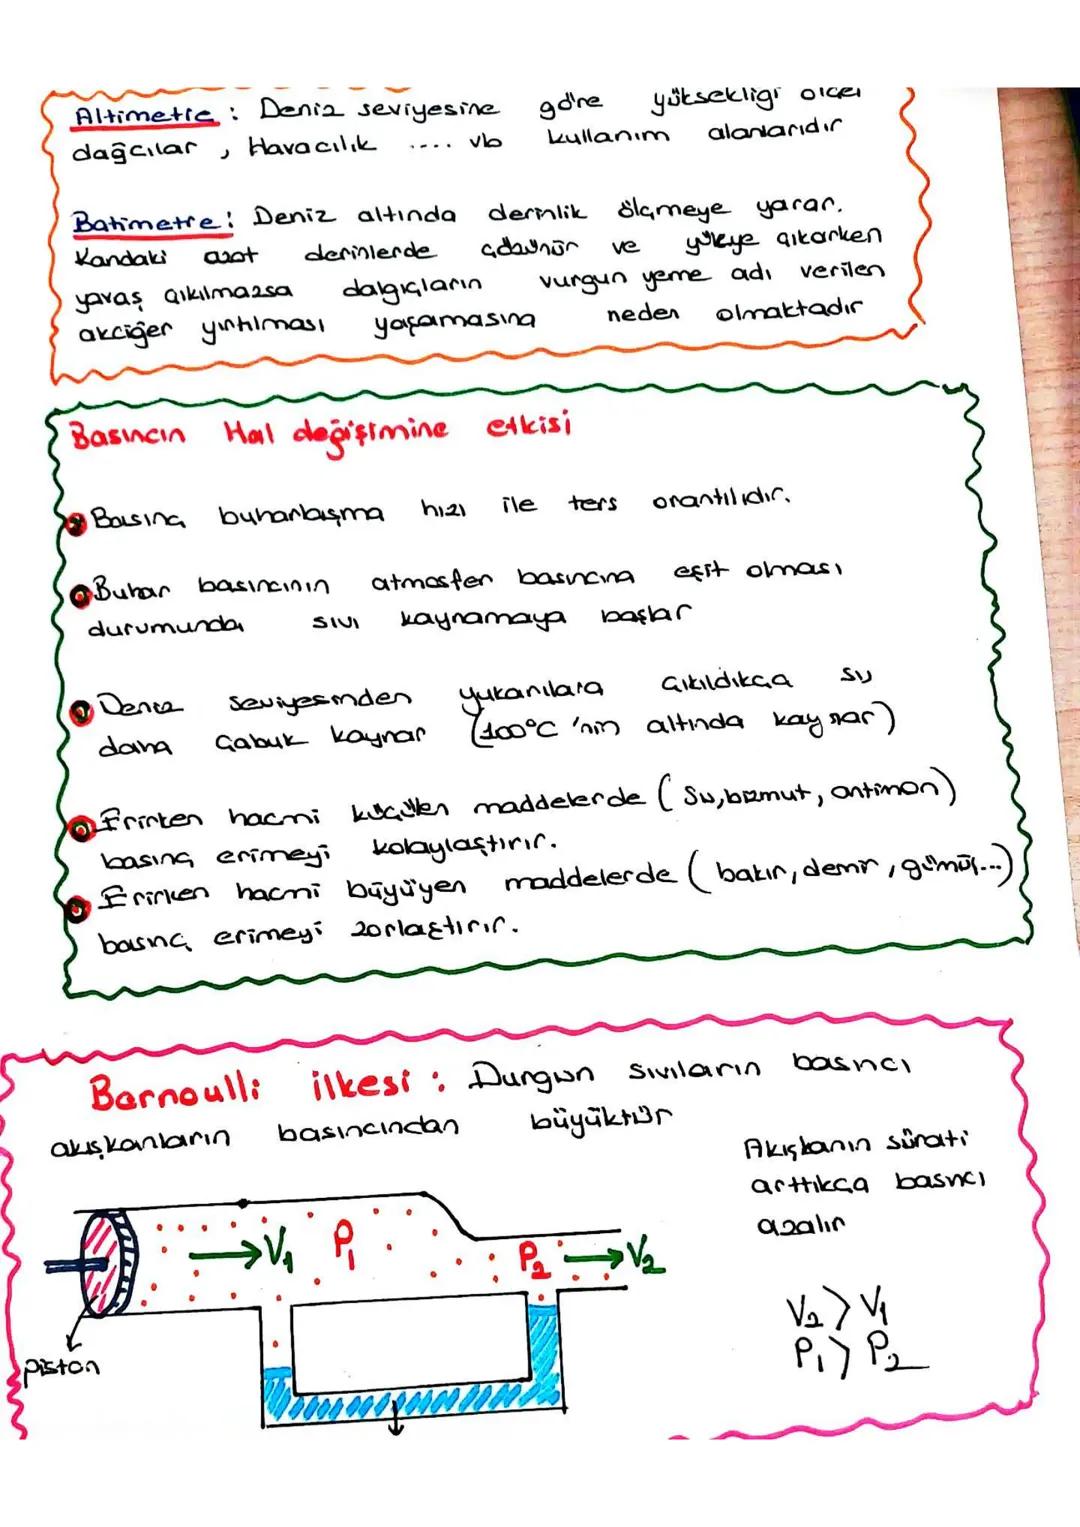 Altimetre : Deniz seviyesine göre yüksekligi ölçer
dağcılar , Havacılık .... vb kullanım alanlarıdır
Batimetre : Deniz altında derinlik ölçmeye yarar.
Kandaki azot derinlerde çözünür ve yüzeye çıkarken
yavaş çıkılmazsa dalgıçların vurgun yeme adı verilen
akciğer yırtılması yaşamasına neden olmaktadır
Basıncın Hal değişimine etkisi
Basınç buharlaşma hızı ile ters orantılıdır.
Buhar basıncının atmosfer basıncına eşit olması
durumunda sıvı kaynamaya başlar
Deniz seviyesinden yukarılara çıkıldıkça su
daha çabuk kaynar (100°C 'nin altında kaynar)
Erirken hacmi küçülen maddelerde ( Su, bizmut, antimon)
basınç erimeyi kolaylaştırır.
Erirken hacmi büyüyen maddelerde ( bakır, demir, gümüş...)
basınç erimeyi zorlaştırır.
Barnoulli ilkesi : Durgun sıvıların basıncı
akışkanların basıncından büyüktür
Akışkanın sürati
arttıkça basıncı
azalır
V1 P1 P2 V2
V2 > V1
P1 > P2
piston